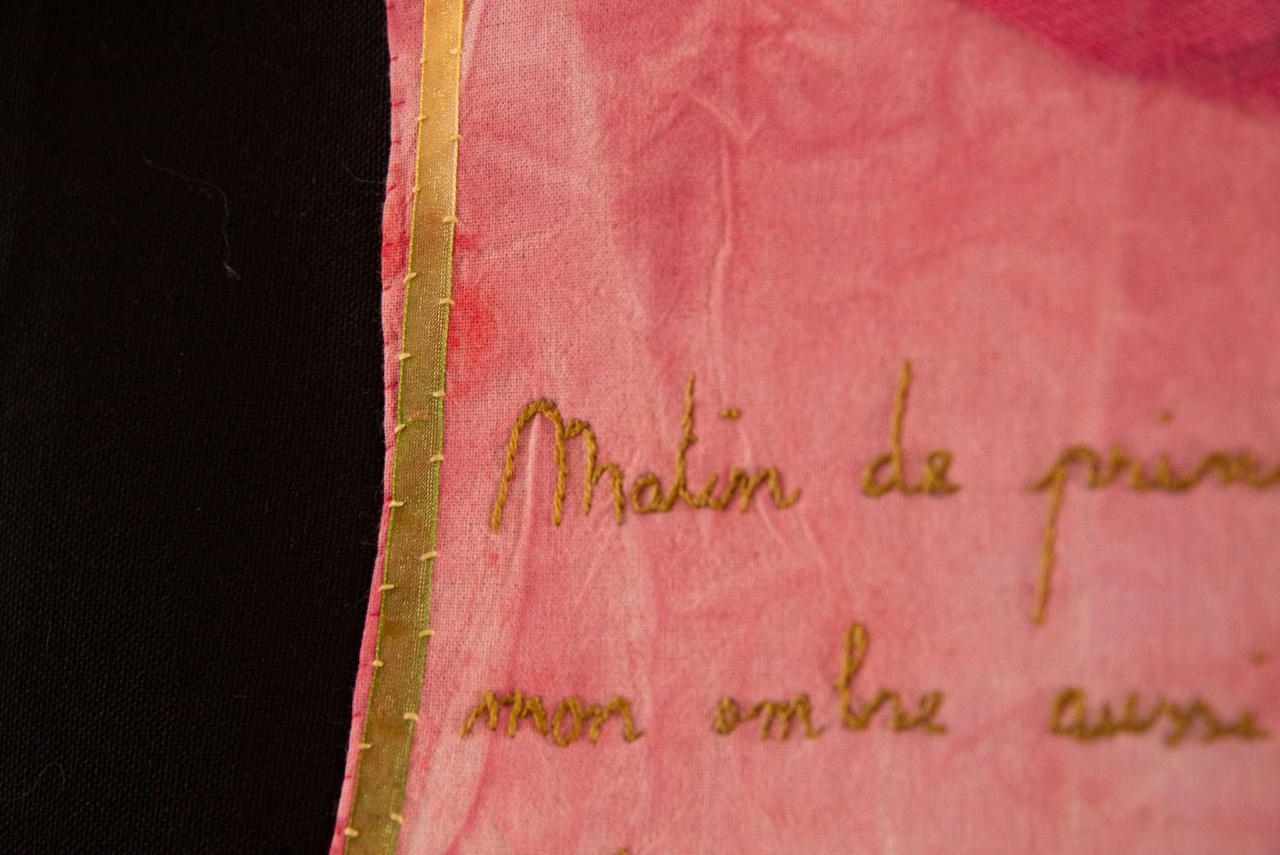 Matin de prin
mon ombre aussi